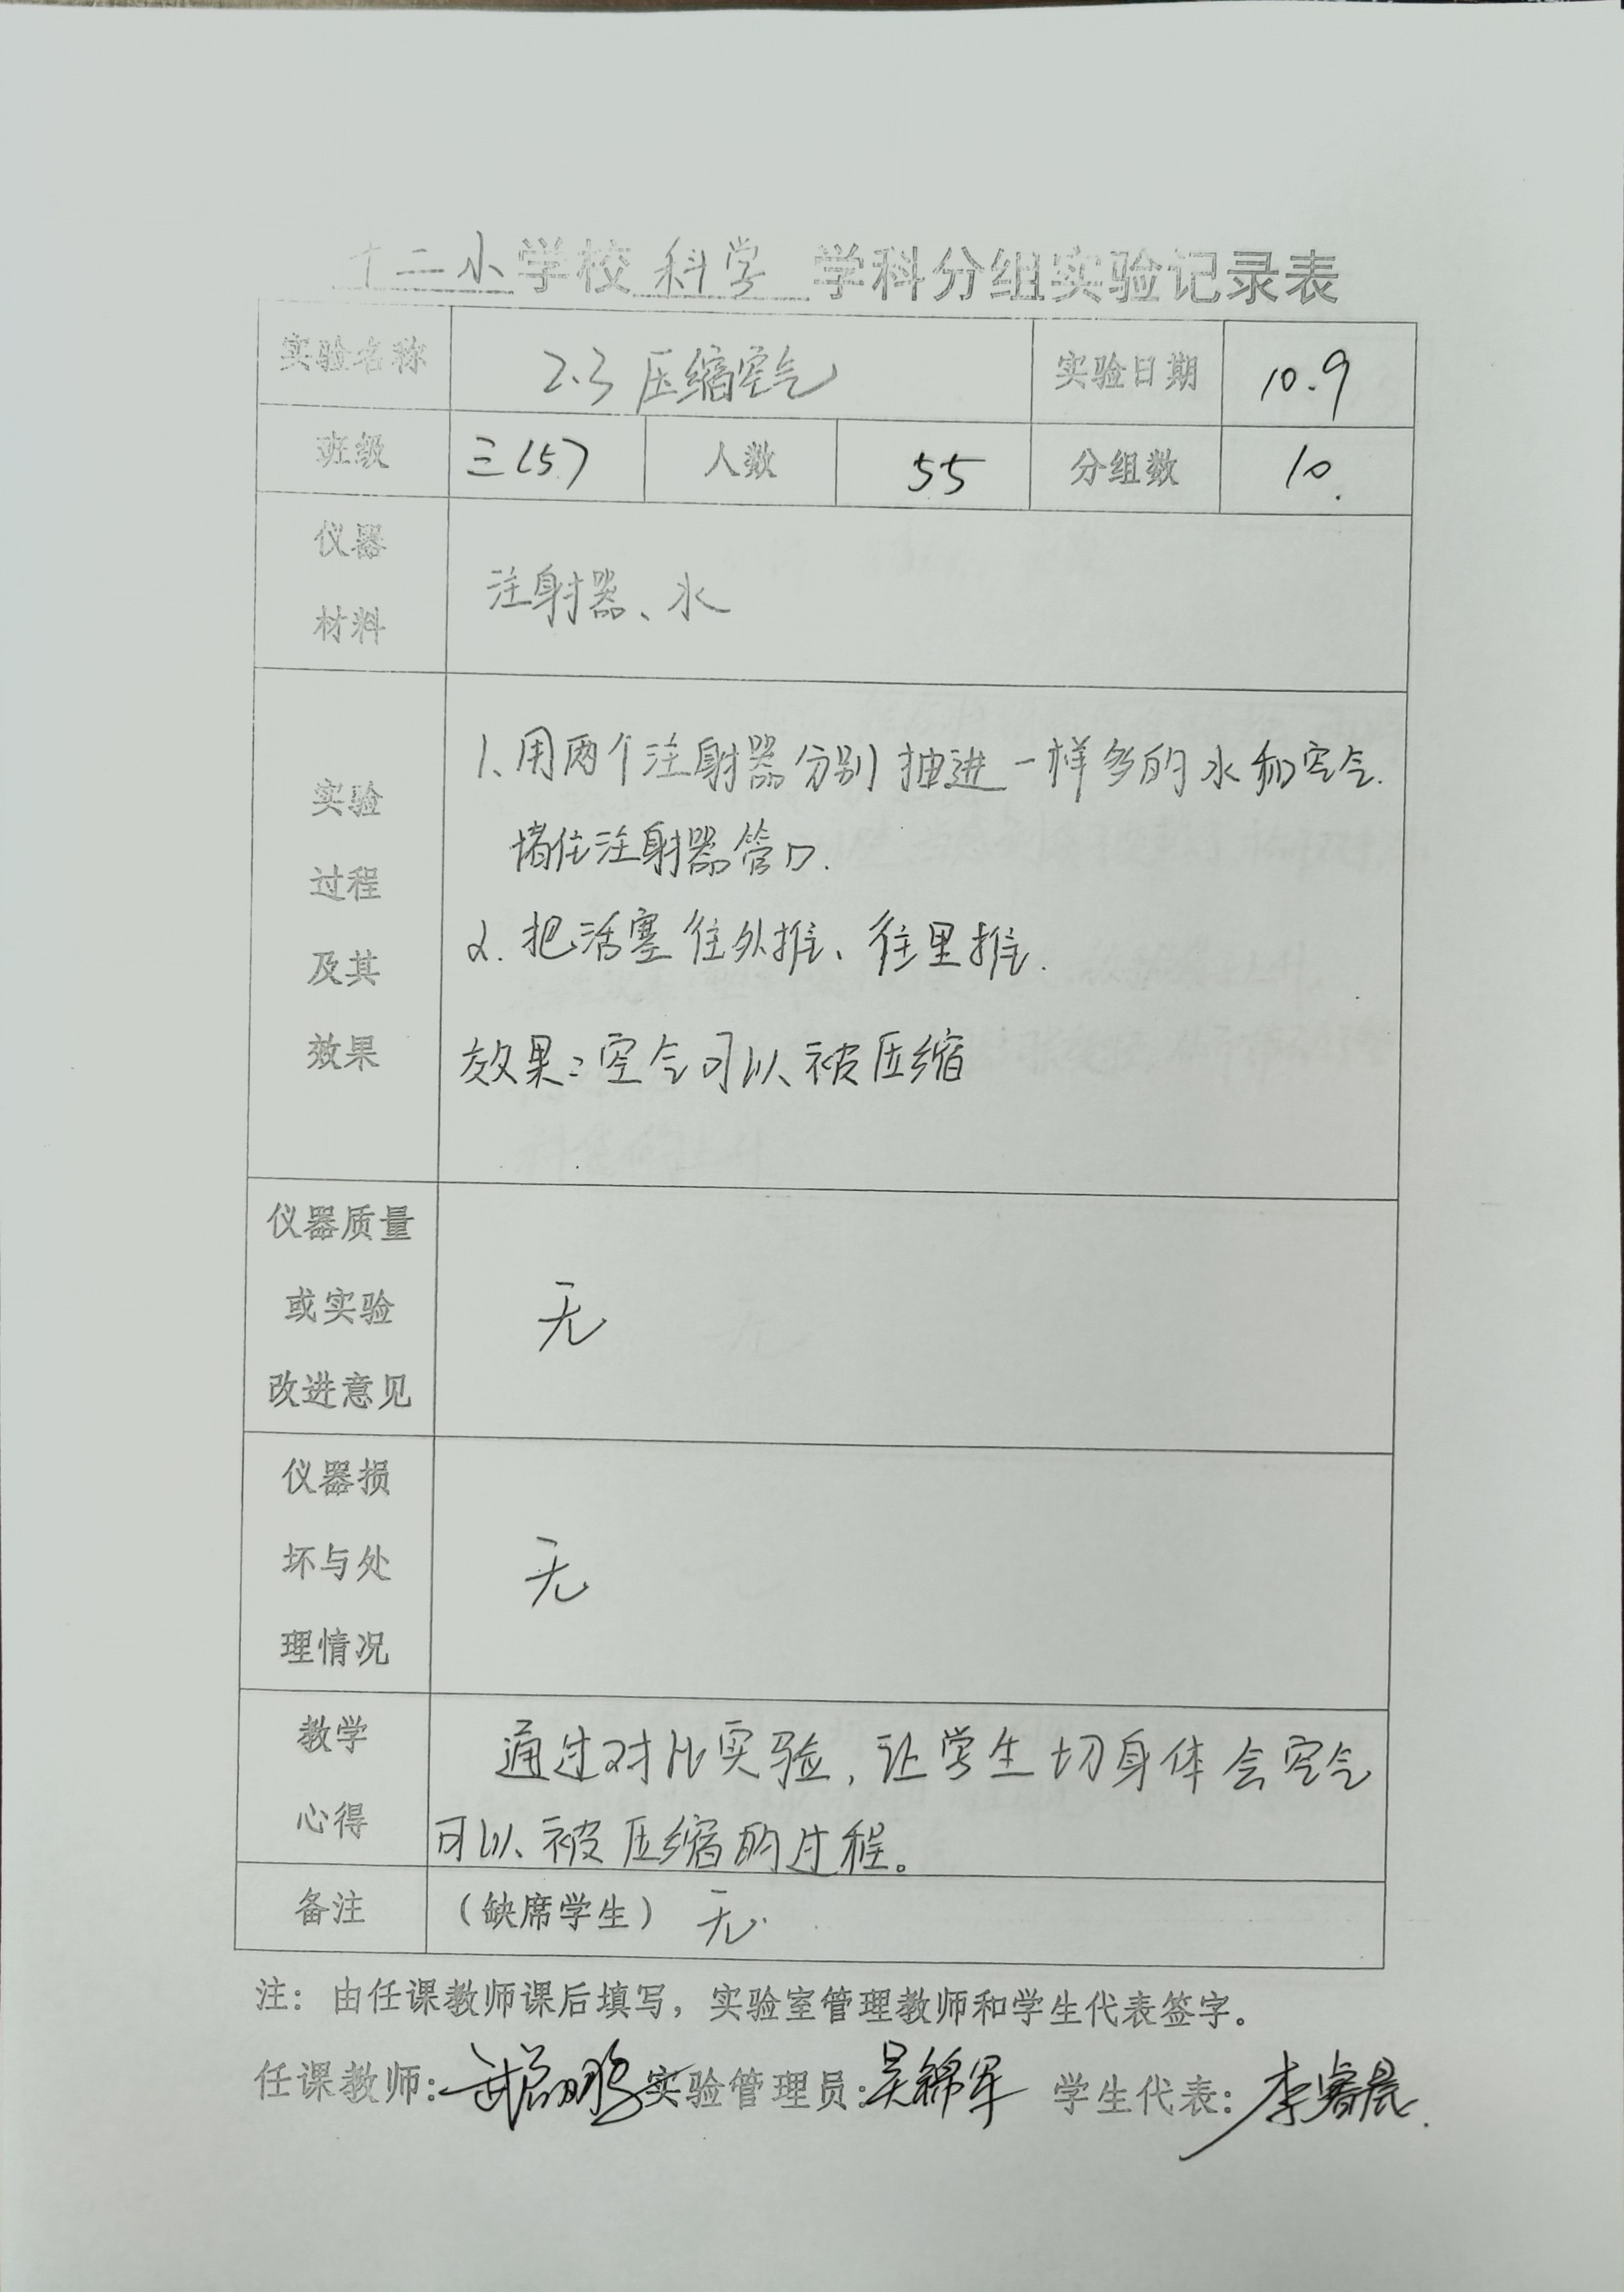 十二小学校 科学 学科分组实验记录表
实验名称 2.3 压缩空气 实验日期 10.9
班级 三(5) 人数 55 分组数 10.
仪器
材料
注射器、水
实验
过程
及其
效果
1、用两个注射器分别抽进一样多的水和空气.
堵住注射器管口.
2. 把活塞往外推、往里推.
效果:空气可以被压缩
仪器质量
或实验
改进意见
无
仪器损
坏与处
理情况
无
教学
心得
通过对比实验,让学生切身体会空气
可以被压缩的过程。
备注 (缺席学生) 无
注：由任课教师课后填写，实验室管理教师和学生代表签字。
任课教师: 实验管理员:吴锦军 学生代表:李睿晨